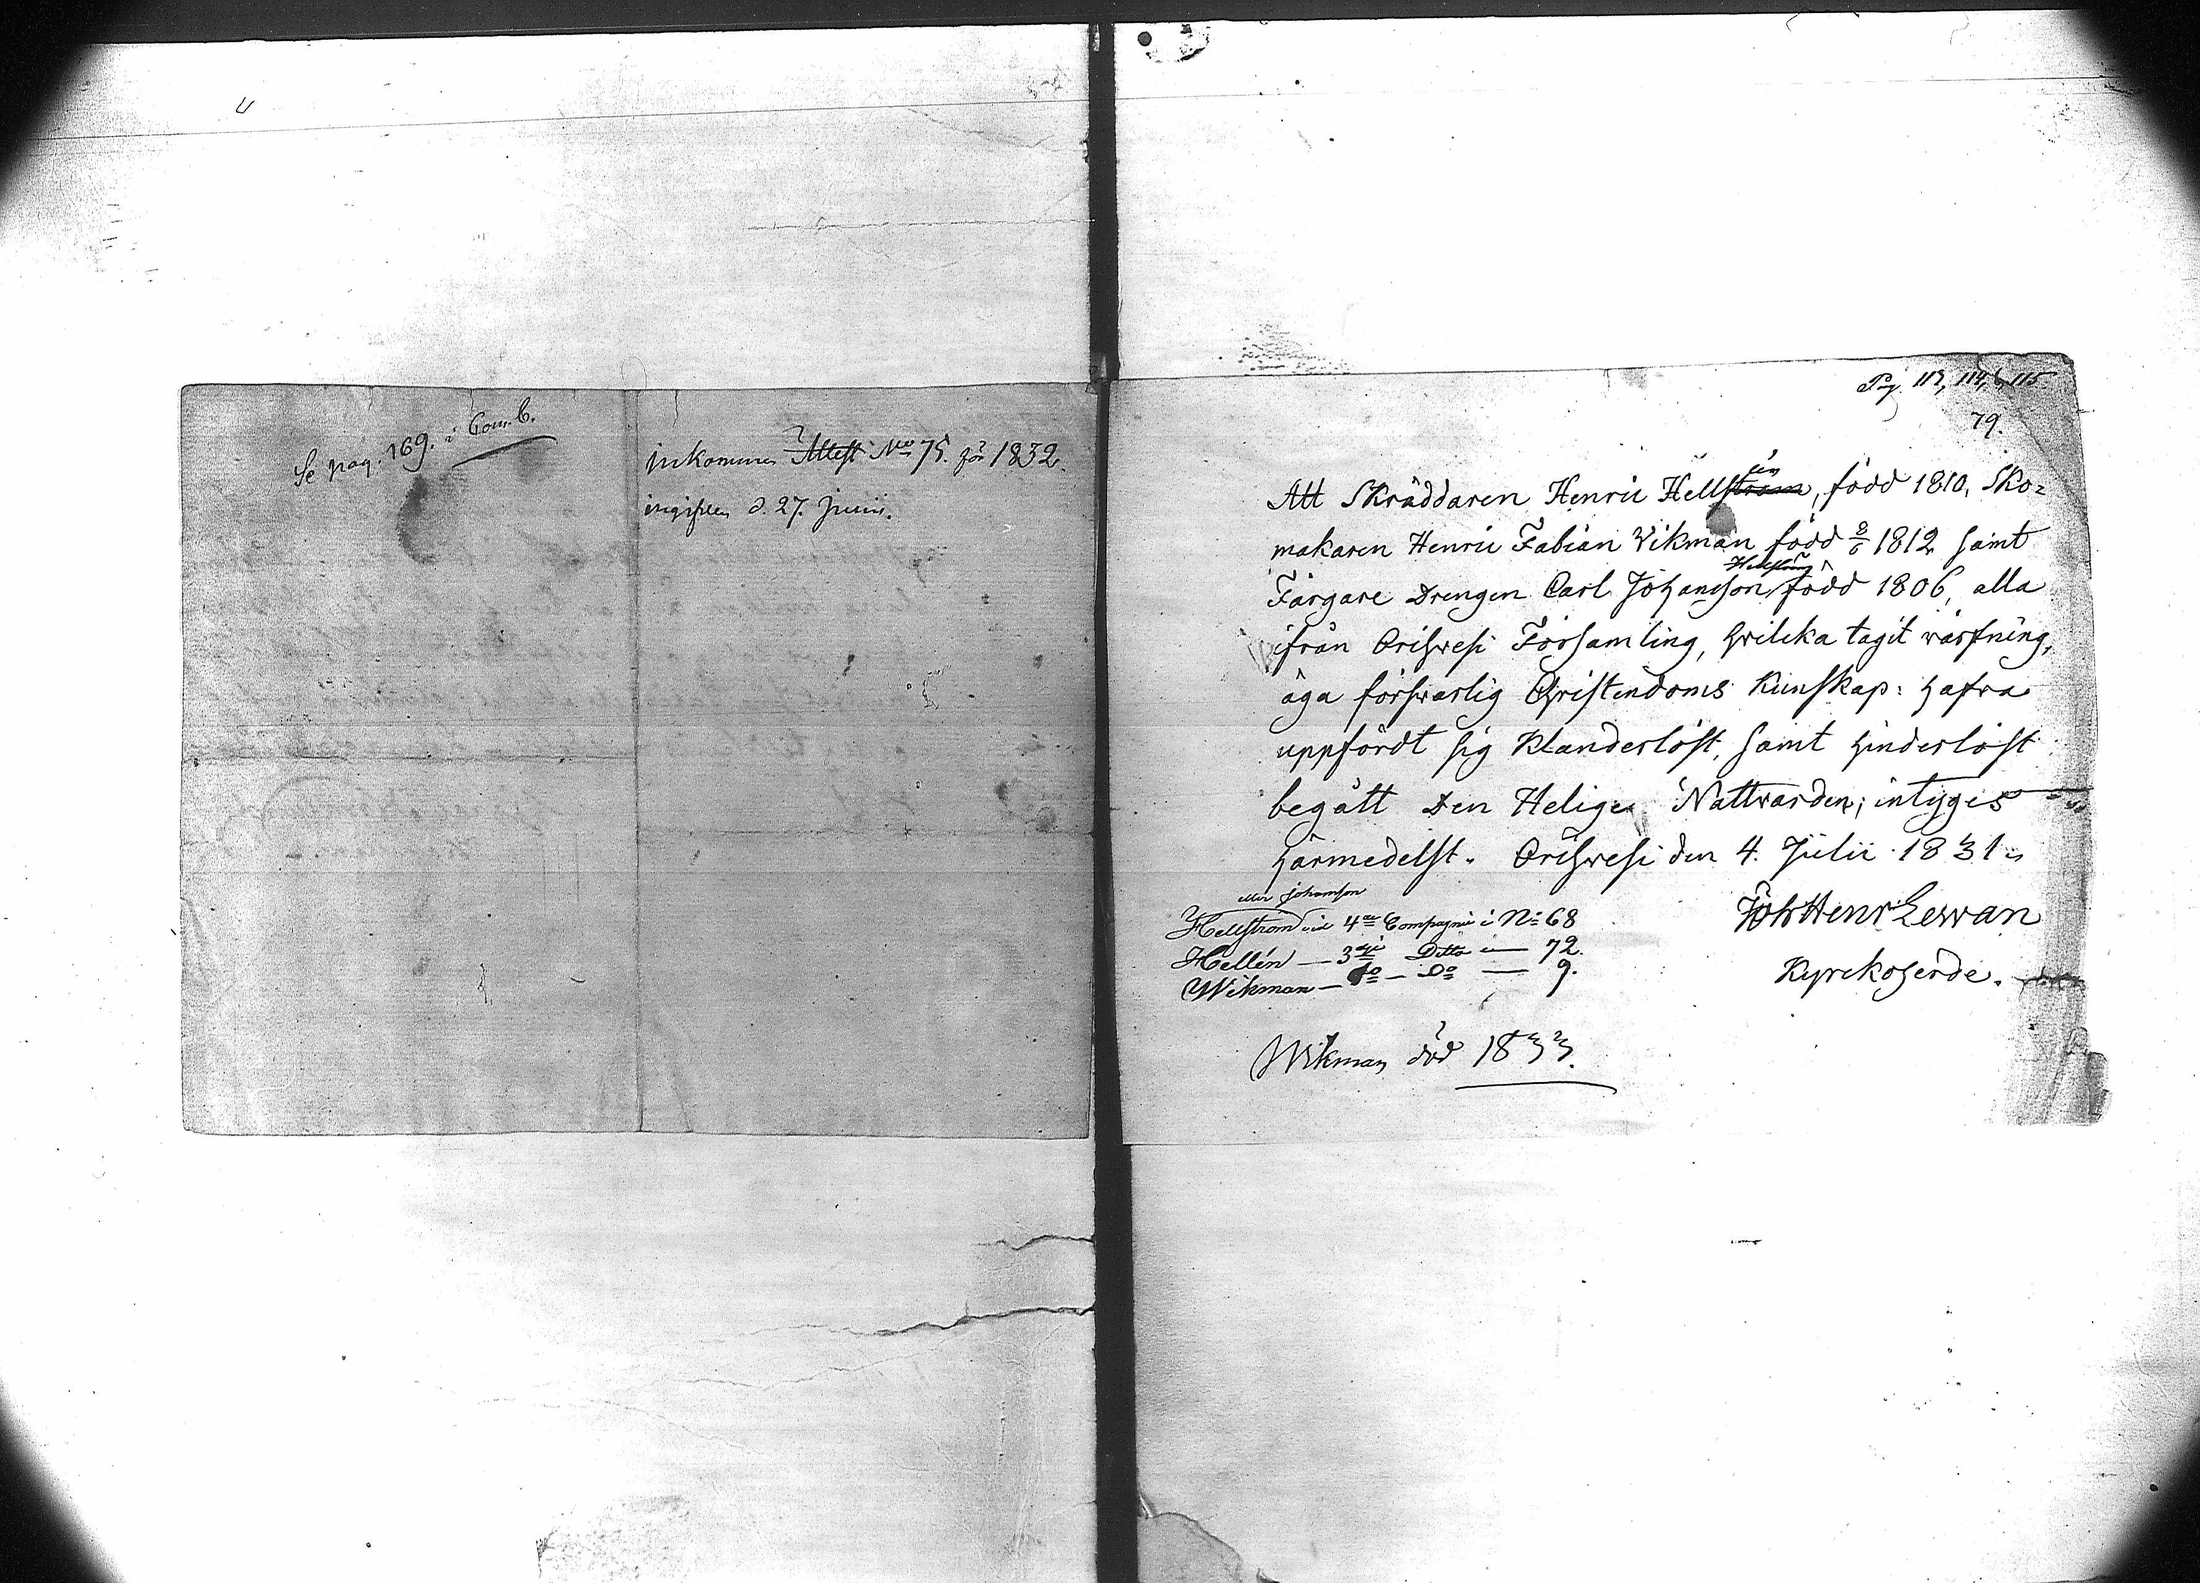 Se pag. 169. i Com. B.
inkommen Attest No 75. för 1832.
ingifven d. 27. Junii.
Pag. 113, 114, & 115
79.
én
Att Skräddaren Henric Hellström, född 1810, Sko=
makaren Henric Fabian Wikman född 8/6 1812 samt
Hellström
Färgare Drengen Carl Johansson, född 1806, alla
ifrån Orihvesi Församling, hvilcka tagit värfning,
äga försvarlig Christendoms Kunskap: hafva
uppfördt sig Klanderlöst, samt hinderlöst
begått Den Heliga Nattvarden; intyges
härmedelst. Orihvesi den 4. Julii 1831.
eller Johansson
Hellström vid 4de Compagnie i No 68
Hellén — 3dje Ditto — 72.
Wikman — do — Do — 9.
Joh Henr Lewan
Kyrckoherde.
Wikman död 1833.